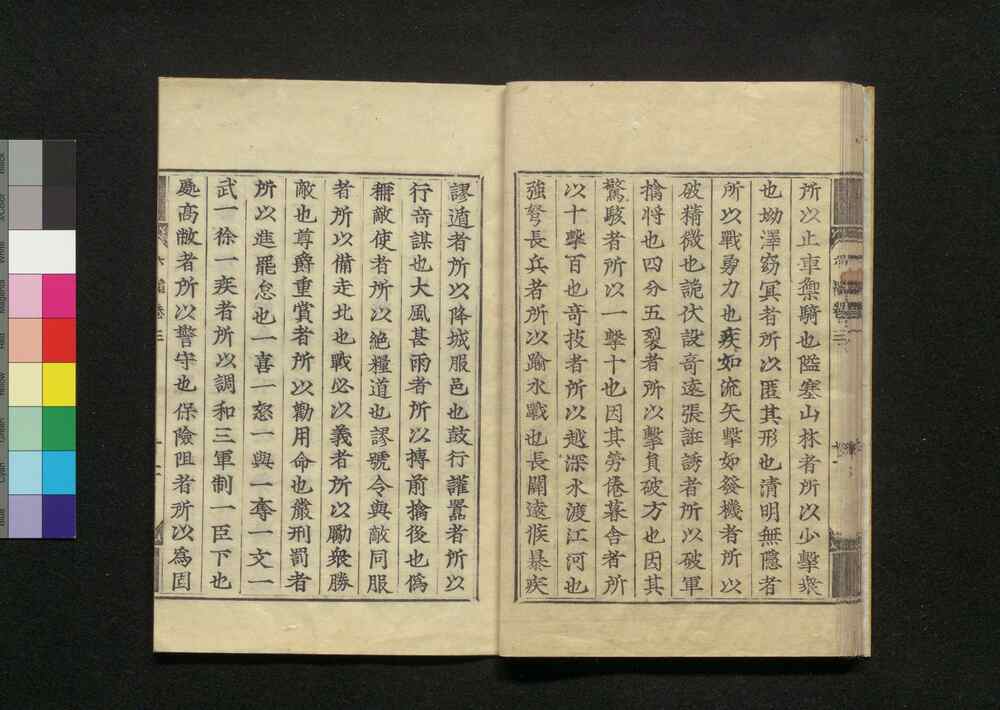 所以止車禦騎也隘塞山林者所以少擊衆
也坳澤窈冥者所以匿其形也清明無隱者
所以戰勇力也疾如流矢擊如發機者所以
破精微也詭伏設奇遠張誑誘者所以破軍
擒將也四分五裂者所以擊負破方也因其
驚駭者所以一擊十也因其勞倦暮舍者所
以十擊百也奇技者所以越深水渡江河也
強弩長兵者所以踰水戰也長關遠候暴疾
謬遁者所以降城服邑也鼓行讙囂者所以
行奇謀也大風甚雨者所以搏前擒後也僞
稱敵使者所以絶糧道也謬號令與敵同服
者所以備走北也戰必以義者所以勵衆勝
敵也尊爵重賞者所以勸用命也嚴刑罰者
所以進罷怠也一喜一怒一與一奪一文一
武一徐一疾者所以調和三軍制一臣下也
處高敞者所以警守也保險阻者所以爲固
六韜卷三